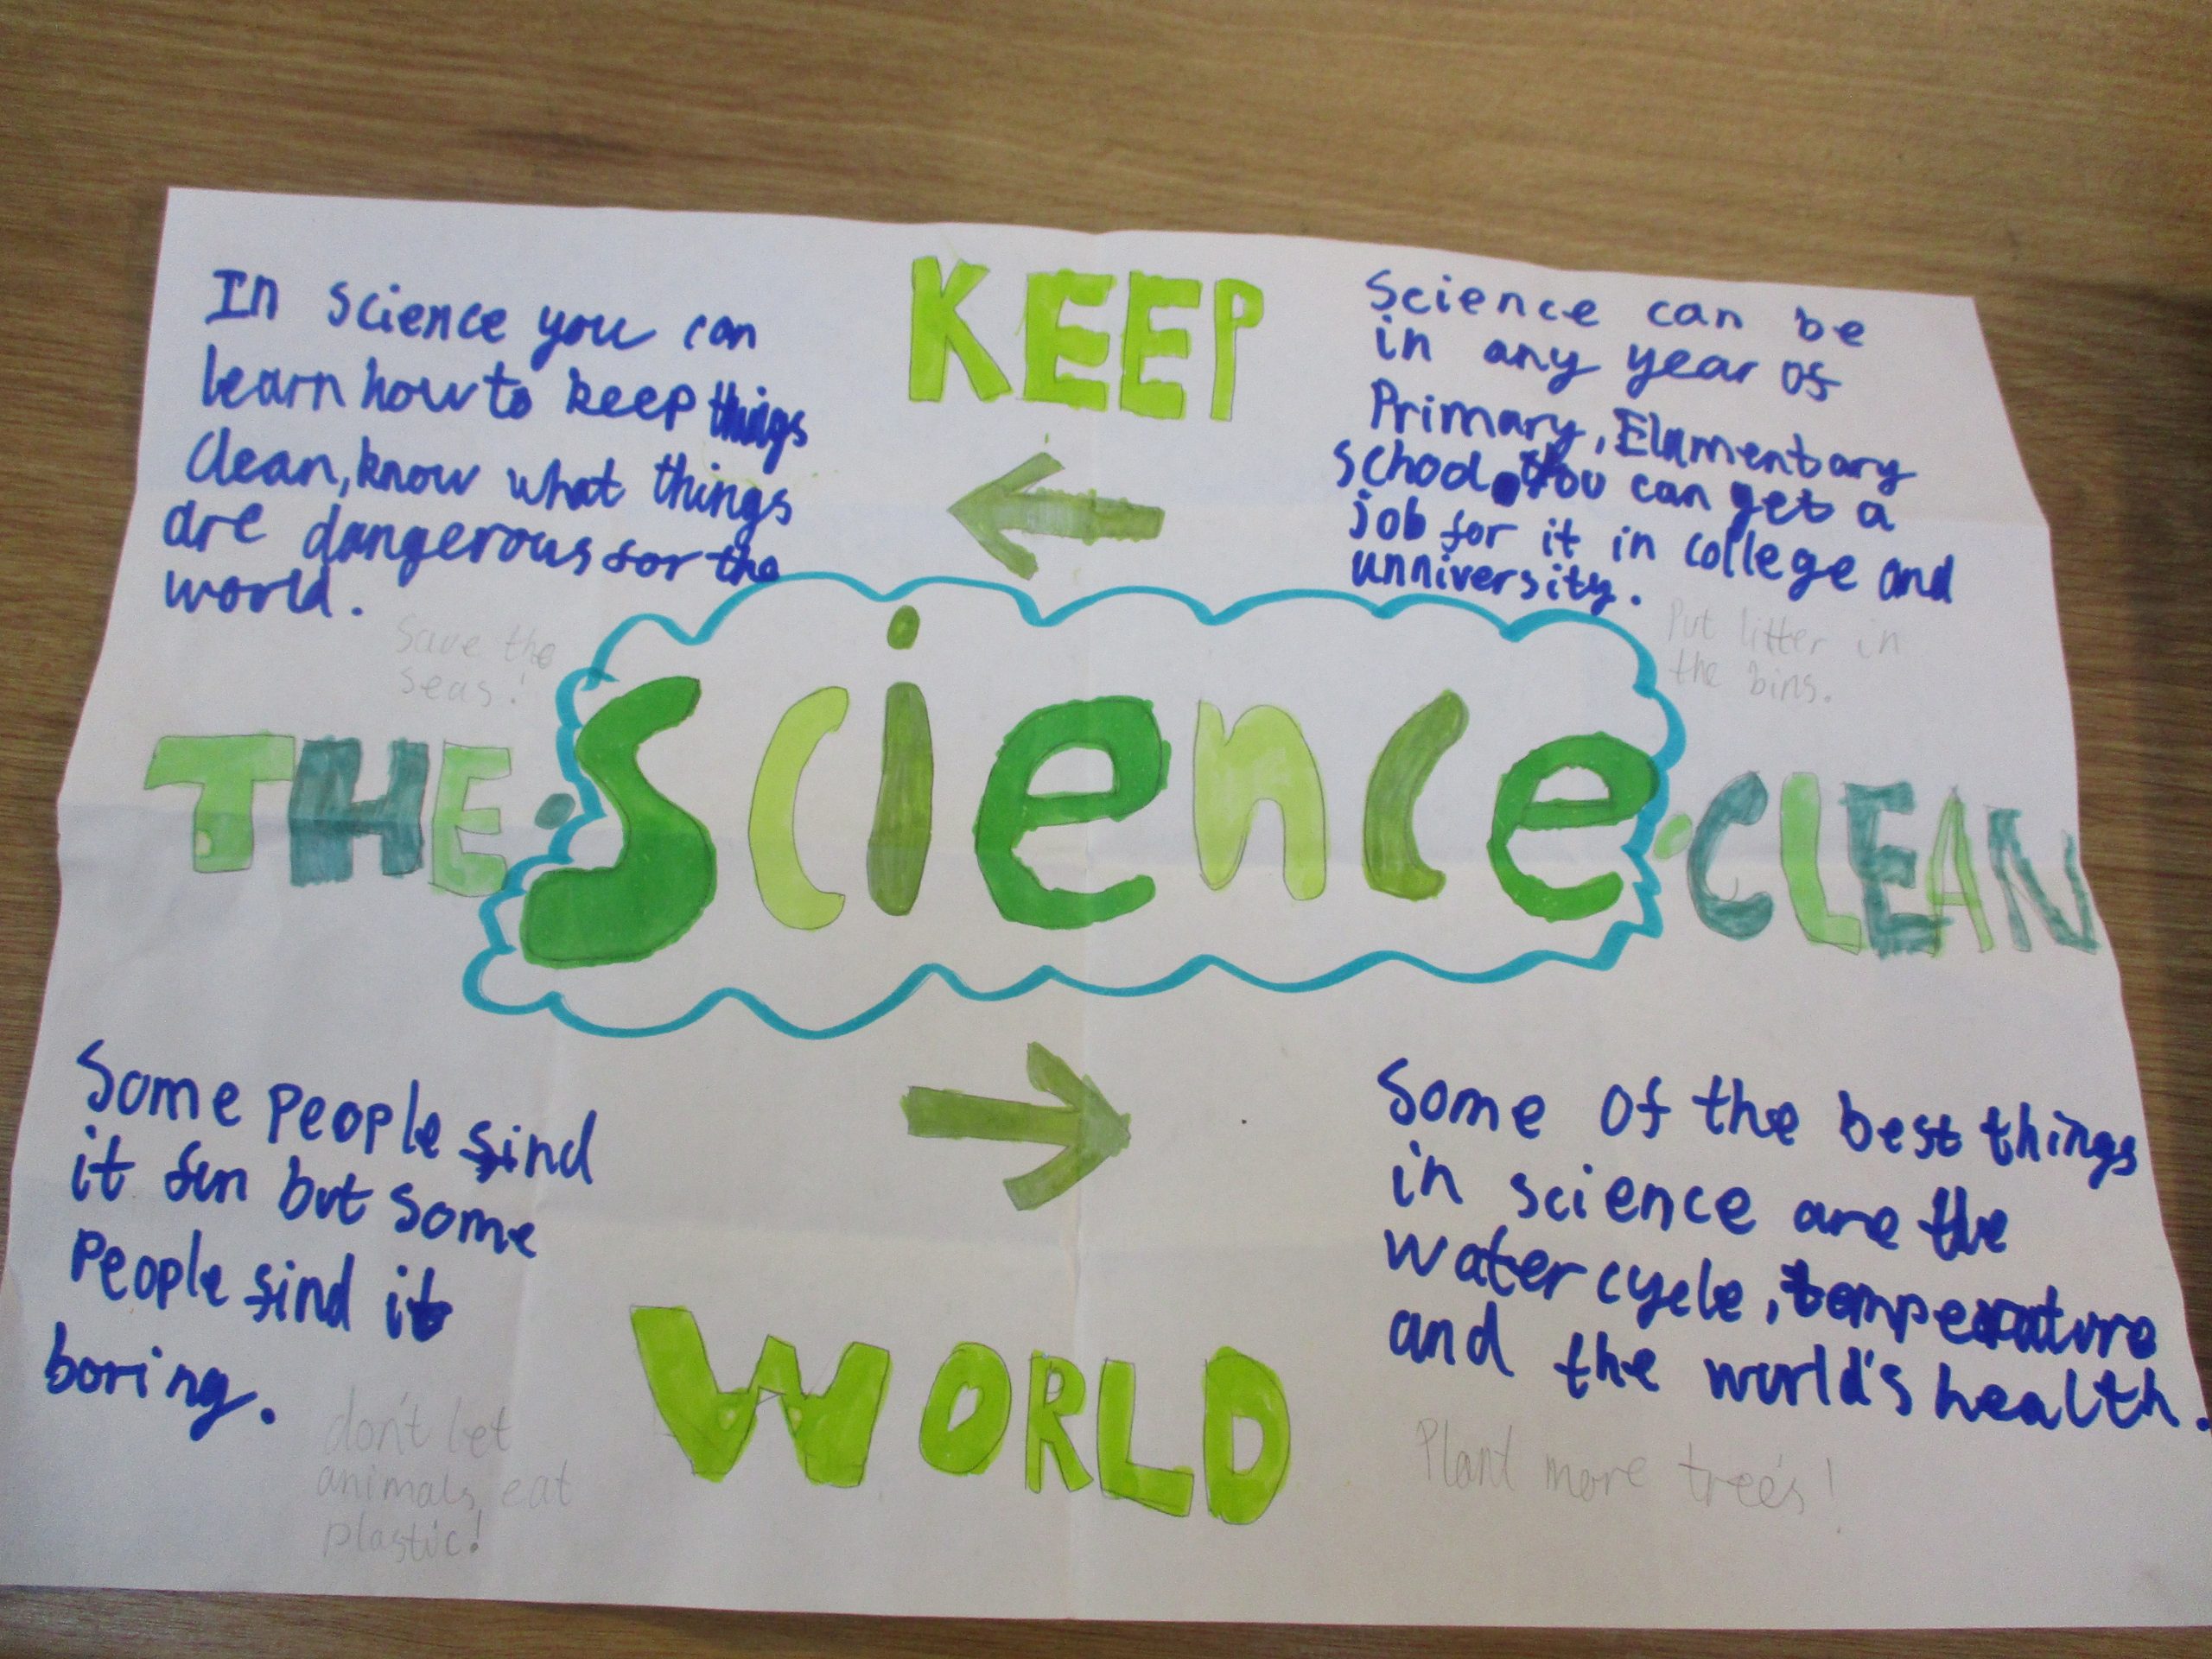 In science you can
learn how to keep things
clean, know what things
are dangerous for the
world.
Save the
seas!
KEEP
Science can be
in any year of
Primary, Elamentary
school. You can get a
job for it in college and
unniversity.
Put litter in
the bins.
THE.
Science
.CLEAN
Some people find
it fun but some
people find it
boring.
don't let
animals eat
plastic!
WORLD
Some of the best things
in science are the
water cycle, temperature
and the world's health.
Plant more trees!